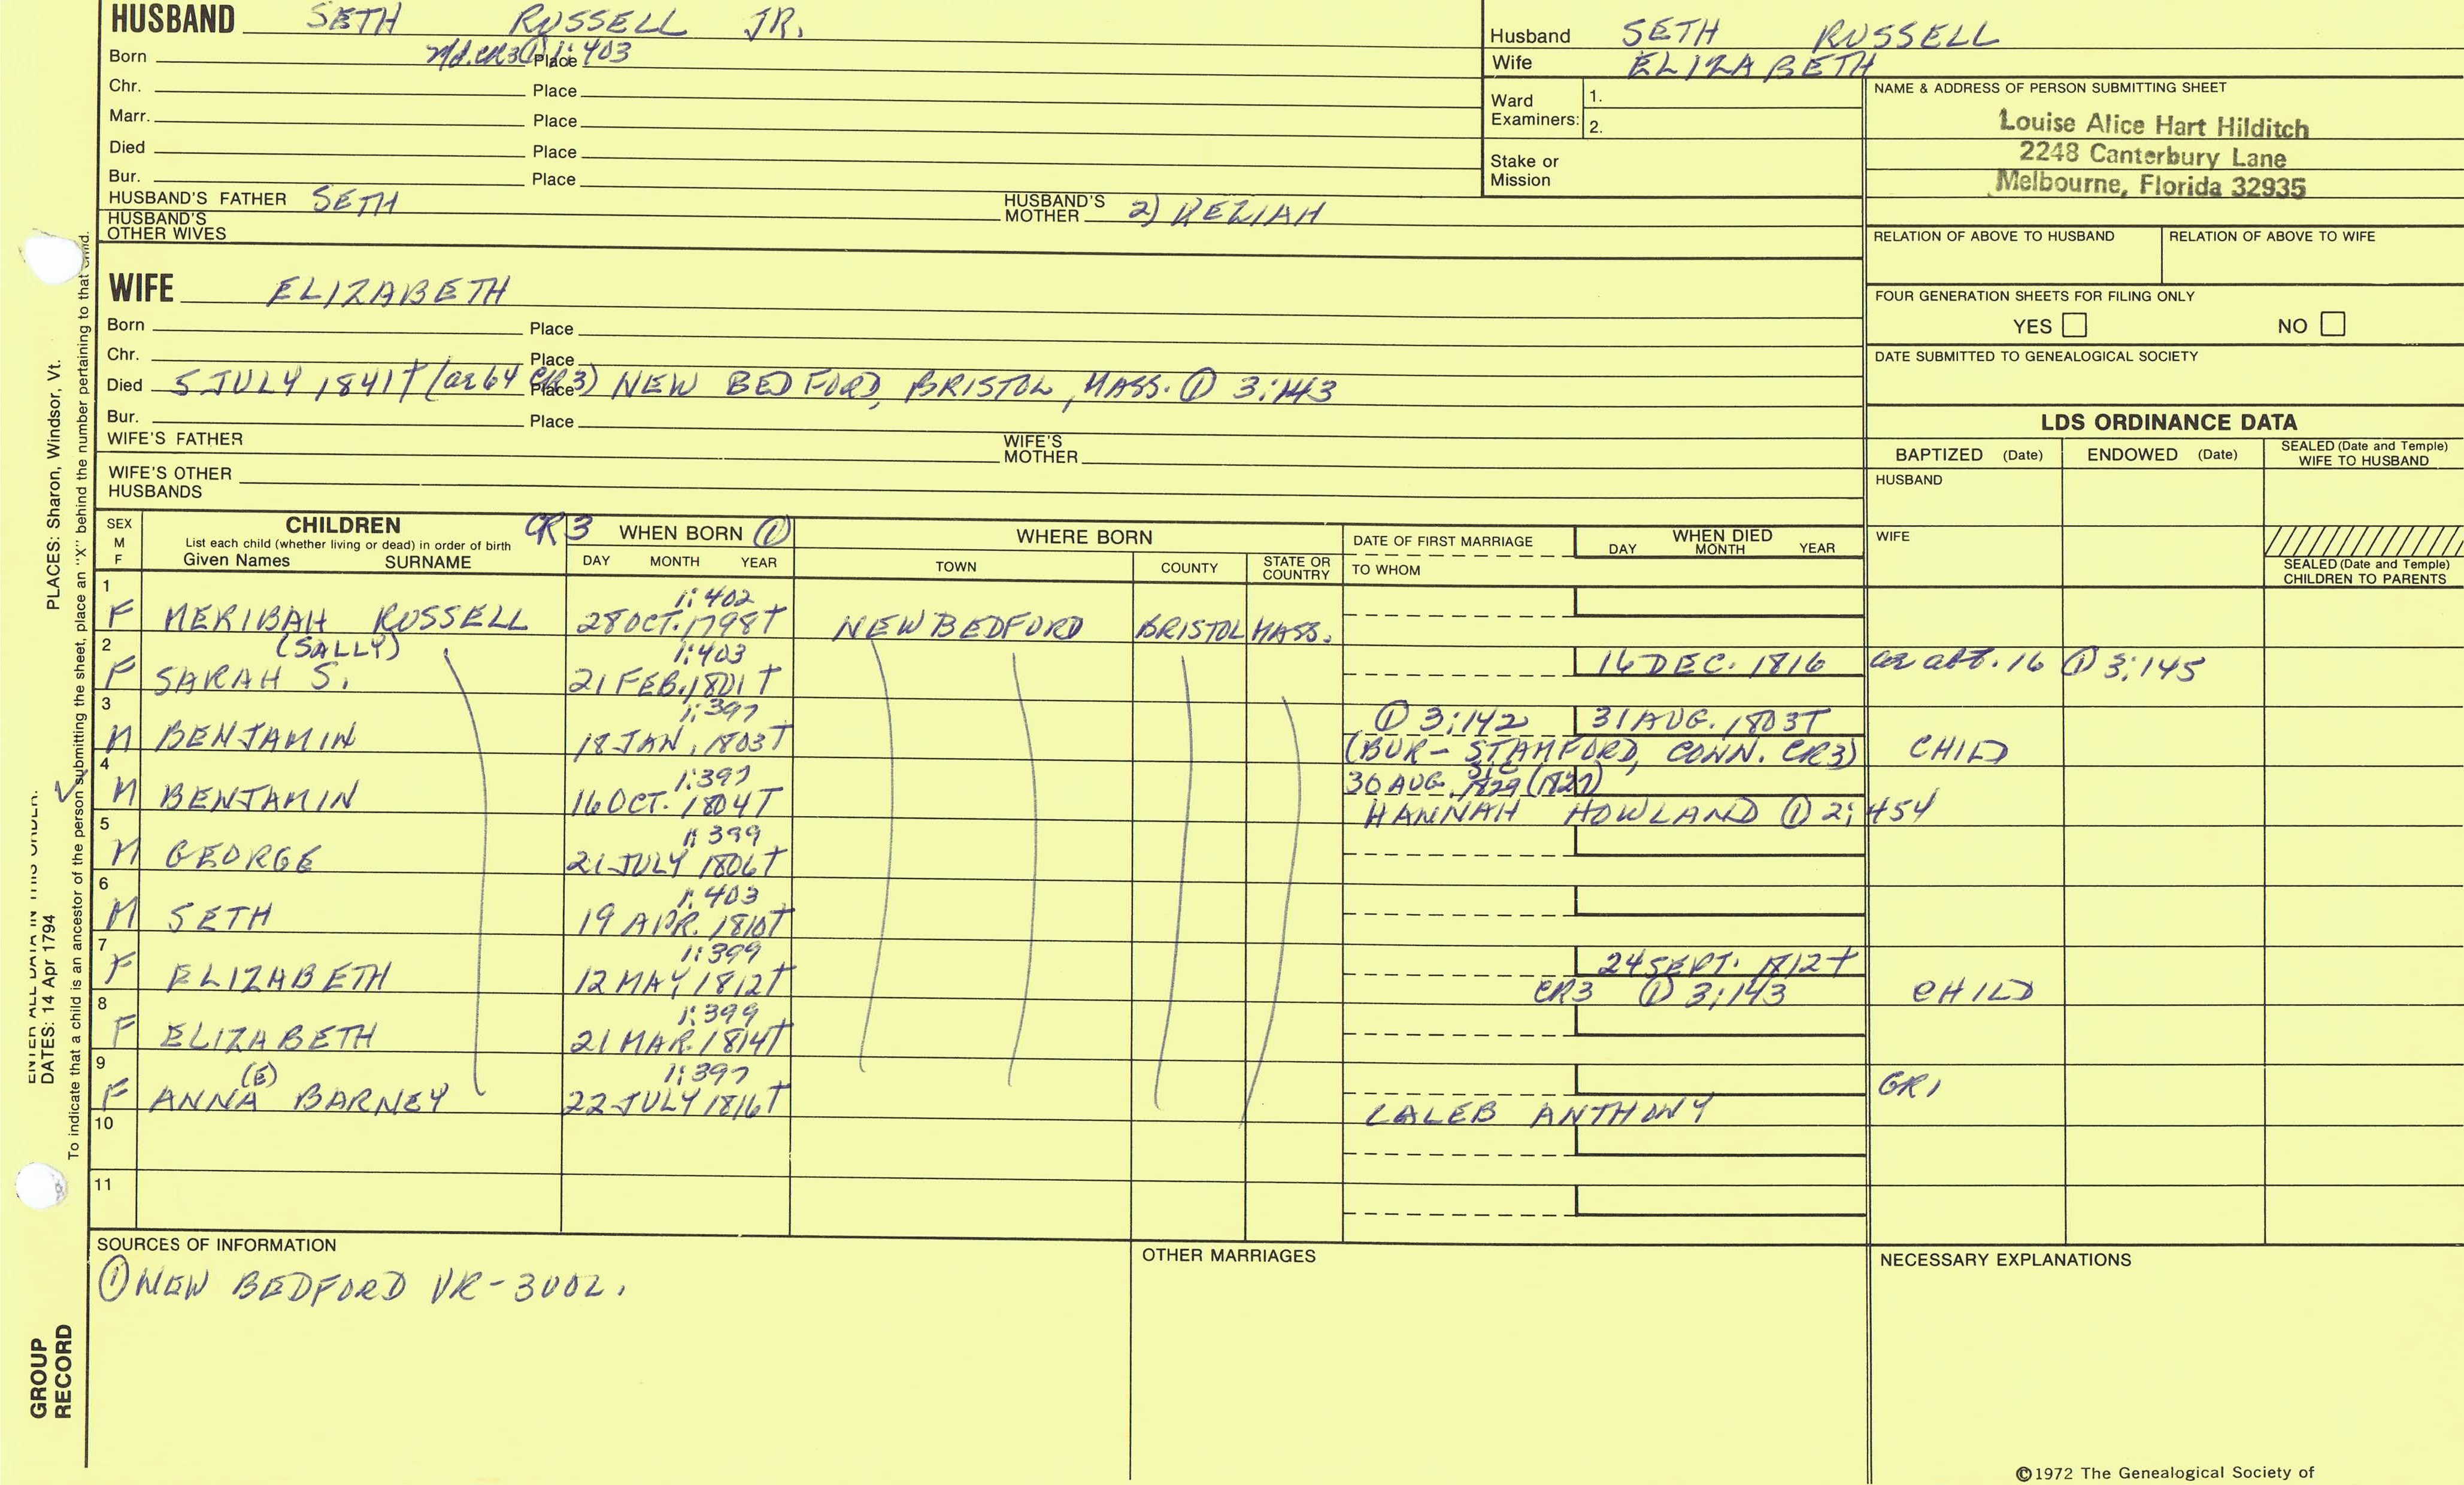 HUSBAND SETH RUSSELL JR.
Born n/d. CR3 ① 1:403 Place
Chr. Place
Marr. Place
Died Place
Bur. Place
HUSBAND'S FATHER SETH HUSBAND'S MOTHER 2) KEZIAH
HUSBAND'S OTHER WIVES
Husband SETH RUSSELL
Wife ELIZABETH
Ward Examiners: 1. 2.
Stake or Mission
NAME & ADDRESS OF PERSON SUBMITTING SHEET
Louise Alice Hart Hilditch
2248 Canterbury Lane
Melbourne, Florida 32935
RELATION OF ABOVE TO HUSBAND RELATION OF ABOVE TO WIFE
FOUR GENERATION SHEETS FOR FILING ONLY
YES NO
DATE SUBMITTED TO GENEALOGICAL SOCIETY
WIFE ELIZABETH
Born Place
Chr. Place
Died 5 JULY 1841† (ae 64 CR3) Place NEW BEDFORD, BRISTOL, MASS. ① 3:143
Bur. Place
WIFE'S FATHER WIFE'S MOTHER
WIFE'S OTHER HUSBANDS
LDS ORDINANCE DATA
BAPTIZED (Date) ENDOWED (Date) SEALED (Date and Temple) WIFE TO HUSBAND
HUSBAND
WIFE
SEALED (Date and Temple) CHILDREN TO PARENTS
SEX M F CHILDREN CR3 WHEN BORN ① WHERE BORN DATE OF FIRST MARRIAGE WHEN DIED
List each child (whether living or dead) in order of birth
Given Names SURNAME DAY MONTH YEAR TOWN COUNTY STATE OR COUNTRY TO WHOM DAY MONTH YEAR
1 1:402
F MERIBAH RUSSELL 28 OCT. 1798† NEW BEDFORD BRISTOL MASS.
2 (SALLY) 1:403
F SARAH S. 21 FEB. 1801† 16 DEC. 1816 ae abt. 16 ① 3:145
3 1:397 ① 3:142 31 AUG. 1803†
M BENJAMIN 18 JAN. 1803† (BUR- STAMFORD, CONN. CR3) CHILD
4 1:397 30 AUG. sic 1829 (1827)
M BENJAMIN 16 OCT. 1804† HANNAH HOWLAND ① 2:454
5 1:399
M GEORGE 21 JULY 1806†
6 1:403
M SETH 19 APR. 1810†
7 1:399 24 SEPT. 1812†
F ELIZABETH 12 MAY 1812† CR3 ① 3:143 CHILD
8 1:399
F ELIZABETH 21 MAR. 1814†
9 (E) 1:397 GR1
F ANNA BARNEY 22 JULY 1816† CALEB ANTHONY
10
11
SOURCES OF INFORMATION
① NEW BEDFORD VR-3VOL.
OTHER MARRIAGES
NECESSARY EXPLANATIONS
©1972 The Genealogical Society of
PLACES: Sharon, Windsor, Vt.
ENTER ALL DATA IN THIS ORDER:
DATES: 14 Apr 1794
To indicate that a child is an ancestor of the person submitting the sheet, place an "X" behind the number pertaining to that child.
GROUP
RECORD